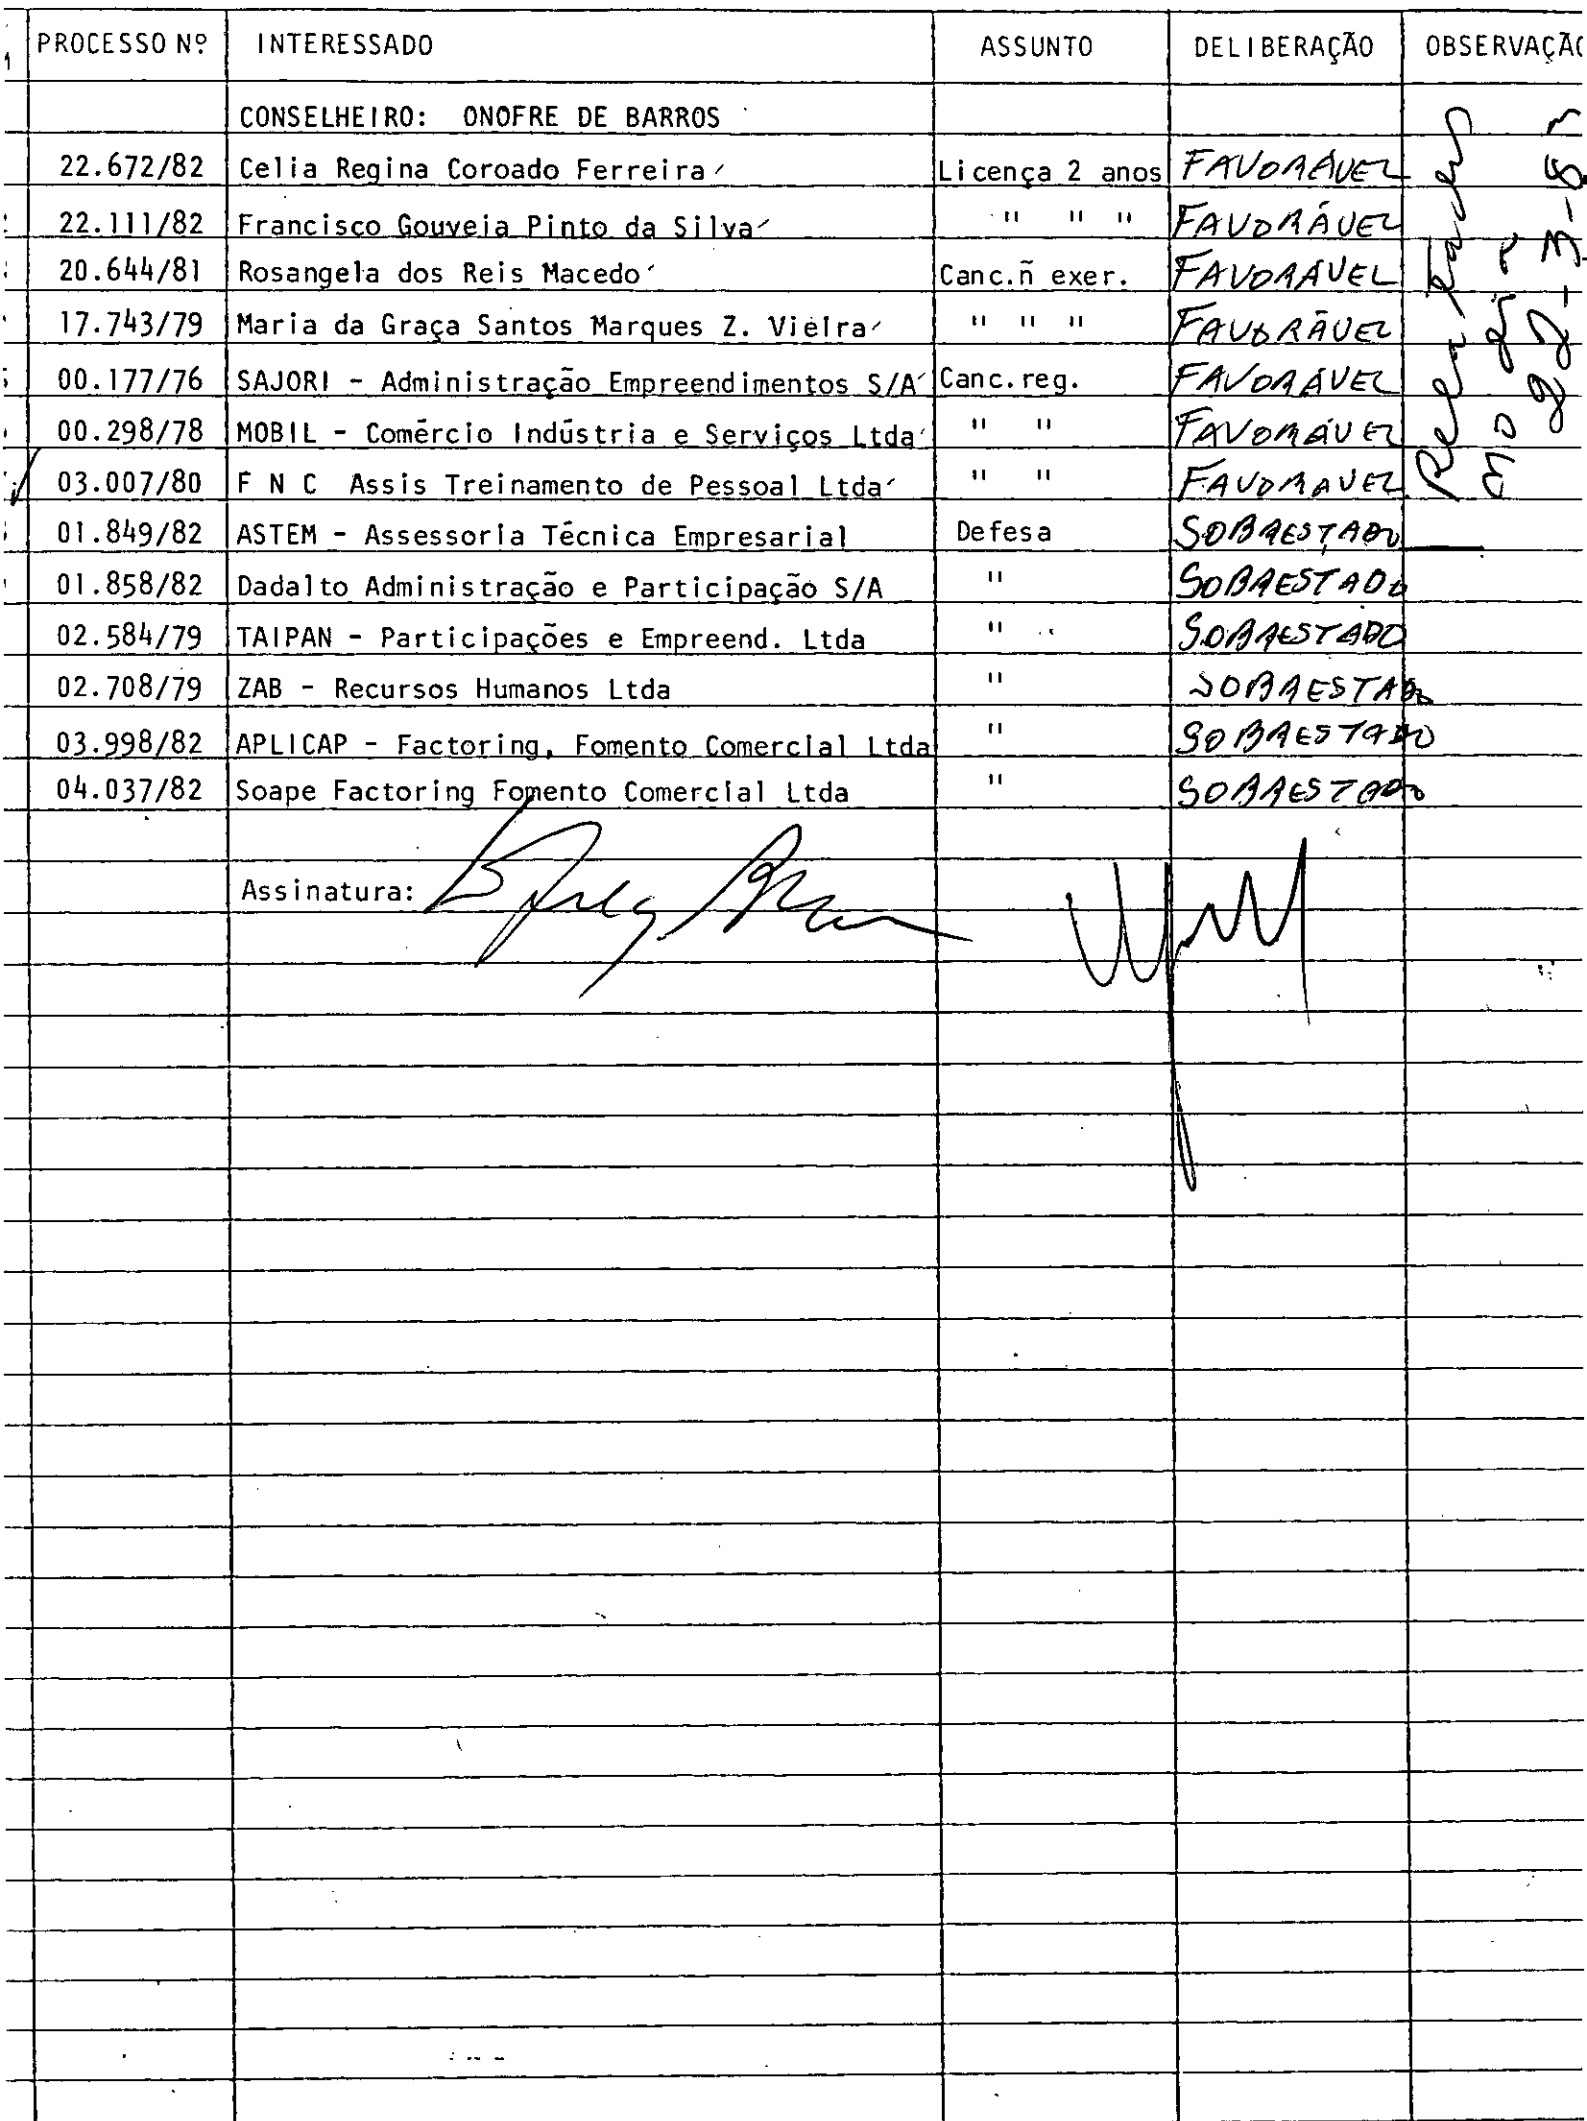 PROCESSO Nº INTERESSADO ASSUNTO DELIBERAÇÃO OBSERVAÇÃO
CONSELHEIRO: ONOFRE DE BARROS
22.672/82 Celia Regina Coroado Ferreira Licença 2 anos FAVORÁVEL
22.111/82 Francisco Gouveia Pinto da Silva " " " FAVORÁVEL
20.644/81 Rosangela dos Reis Macedo Canc.ñ exer. FAVORÁVEL
17.743/79 Maria da Graça Santos Marques Z. Vieira " " " FAVORÁVEL
00.177/76 SAJORI - Administração Empreendimentos S/A Canc.reg. FAVORÁVEL
00.298/78 MOBIL - Comércio Indústria e Serviços Ltda " " FAVORÁVEL
03.007/80 F N C Assis Treinamento de Pessoal Ltda " " FAVORAVEL
01.849/82 ASTEM - Assessoria Técnica Empresarial Defesa SOBRESTADO
01.858/82 Dadalto Administração e Participação S/A " SOBRESTADO
02.584/79 TAIPAN - Participações e Empreend. Ltda " SOBRESTADO
02.708/79 ZAB - Recursos Humanos Ltda " SOBRESTADO
03.998/82 APLICAP - Factoring, Fomento Comercial Ltda " SOBRESTADO
04.037/82 Soape Factoring Fomento Comercial Ltda " SOBRESTADO
Assinatura: